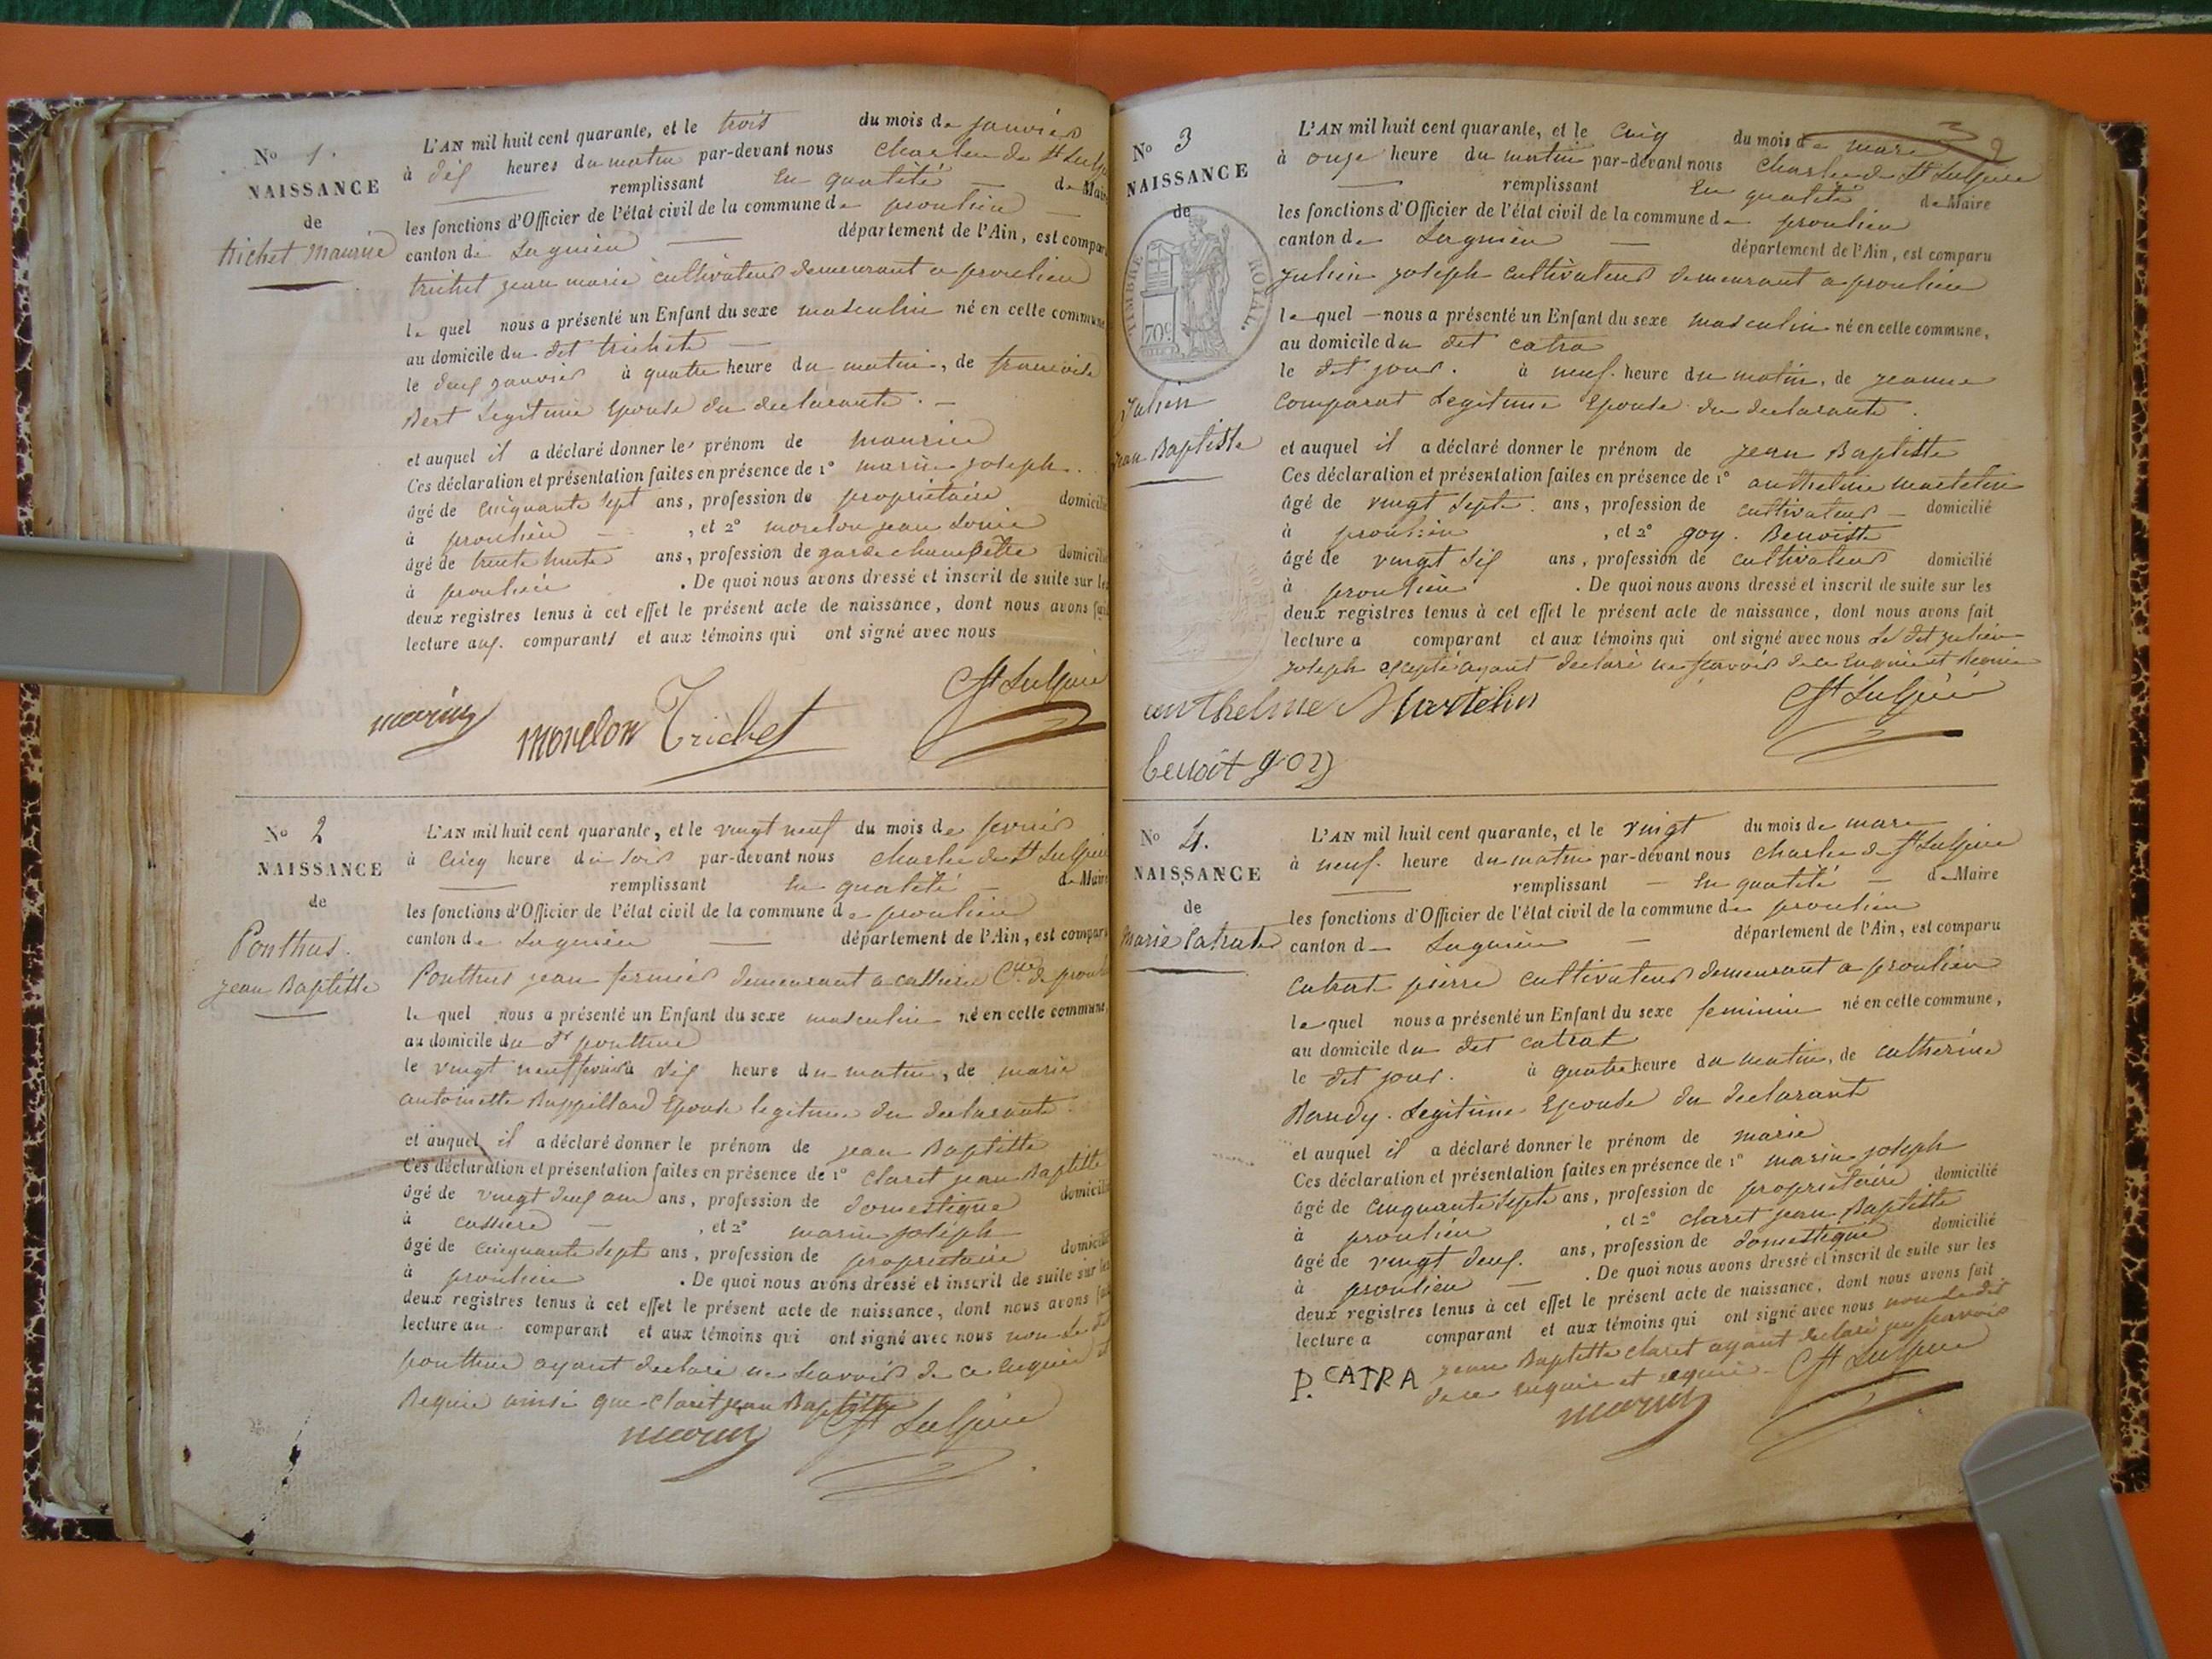 No 1.
NAISSANCE
de
trichet maurice
L'AN mil huit cent quarante, et le trois du mois de janvier
à dix heures du matin par-devant nous Charles de St Sulpice
remplissant en qualité de Maire
les fonctions d'Officier de l'état civil de la commune de proulieu
canton de Lagnieu département de l'Ain, est comparu
trichet jean marie cultivateur demeurant a proulieu
lequel nous a présenté un Enfant du sexe masculin né en cette commune
au domicile du dit trichet
le deux janvier à quatre heure du matin, de francoise
Bert legitime Epouse du declarante.
et auquel il a déclaré donner le prénom de maurice
Ces déclaration et présentation faites en présence de 1° marin joseph
âgé de cinquante sept ans, profession de propriétaire domicilié
à proulieu, et 2° morelon jean Louis
âgé de trente huite ans, profession de garde champêtre domicilié
à proulieu. De quoi nous avons dressé et inscrit de suite sur les
deux registres tenus à cet effet le présent acte de naissance, dont nous avons fait
lecture aux comparants et aux témoins qui ont signé avec nous
marin morelon Trichet St Sulpice
No 2
NAISSANCE
de
Ponthus.
jean Baptiste
L'AN mil huit cent quarante, et le vingt neuf du mois de fevrier
à cinq heure du soir par-devant nous Charles de St Sulpice
remplissant en qualité de Maire
les fonctions d'Officier de l'état civil de la commune de proulieu
canton de Lagnieu département de l'Ain, est comparu
Ponthus jean fermier demeurant a cassiere Cne de proulieu
lequel nous a présenté un Enfant du sexe masculin né en cette commune,
au domicile du dt ponthus
le vingt neuf fevrier à dix heure du matin, de marie
antoinette Ruppillard Epouse legitime du declarante.
et auquel il a déclaré donner le prénom de jean Baptiste
Ces déclaration et présentation faites en présence de 1° claret jean Baptiste
âgé de vingt deux ans ans, profession de domestique domicilié
à cassiere, et 2° marin joseph
âgé de cinquante sept ans, profession de propriétaire domicilié
à proulieu. De quoi nous avons dressé et inscrit de suite sur les
deux registres tenus à cet effet le présent acte de naissance, dont nous avons fait
lecture au comparant et aux témoins qui ont signé avec nous non Le dit
ponthus ayant declaré ne scavoir de ce enquis et
Requis ainsi que claret jean Baptiste
marin St Sulpice
No 3
NAISSANCE
de
TIMBRE ROYAL.
70c
Julien
jean Baptiste
L'AN mil huit cent quarante, et le cinq du mois de mars
à onze heure du matin par-devant nous Charles de St Sulpice
remplissant en qualité de Maire
les fonctions d'Officier de l'état civil de la commune de proulieu
canton de Lagnieu département de l'Ain, est comparu
Julien joseph cultivateur demeurant a proulieu
lequel nous a présenté un Enfant du sexe masculin né en cette commune,
au domicile du dit catra
le dit jour. à neuf heure du matin, de jeanne
comparat Legitime Epouse du declarante.
et auquel il a déclaré donner le prénom de jean Baptiste
Ces déclaration et présentation faites en présence de 1° anthelme martelin
âgé de vingt sept ans, profession de cultivateur domicilié
à proulieu, et 2° goy. Benoitte
âgé de vingt six ans, profession de cultivateur domicilié
à proulieu. De quoi nous avons dressé et inscrit de suite sur les
deux registres tenus à cet effet le présent acte de naissance, dont nous avons fait
lecture a comparant et aux témoins qui ont signé avec nous Le dit julien
joseph excepté ayant declaré ne scavoir de ce enquis et Requis
anthelme Martelin St Sulpice
benoit goy
No 4.
NAISSANCE
de
marie Catrat
L'AN mil huit cent quarante, et le vingt du mois de mars
à neuf. heure du matin par-devant nous Charles de St Sulpice
remplissant en qualité de Maire
les fonctions d'Officier de l'état civil de la commune de proulieu
canton de Lagnieu département de l'Ain, est comparu
catrat pierre cultivateur demeurant a proulieu
lequel nous a présenté un Enfant du sexe feminin né en cette commune,
au domicile du dit catrat
le dit jour. à quatre heure du matin, de catherine
Baudy. Legitime Epouse du declarante
et auquel il a déclaré donner le prénom de marie
Ces déclaration et présentation faites en présence de 1° marin joseph
âgé de cinquante sept ans, profession de propriétaire domicilié
à proulieu, et 2° claret jean Baptiste
âgé de vingt deux. ans, profession de domestique domicilié
à proulieu. De quoi nous avons dressé et inscrit de suite sur les
deux registres tenus à cet effet le présent acte de naissance, dont nous avons fait
lecture a comparant et aux témoins qui ont signé avec nous non Le dit
jean Baptiste claret ayant declaré ne scavoir
de ce enquis et requis
P. CATRA marin St Sulpice